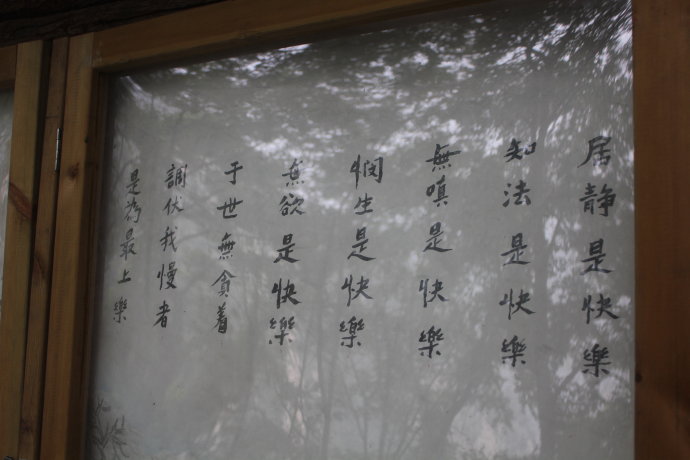 居静是快樂
知法是快樂
無嗔是快樂
悯生是快樂
無欲是快樂
于世無貪着
調伏我慢者
是為最上樂